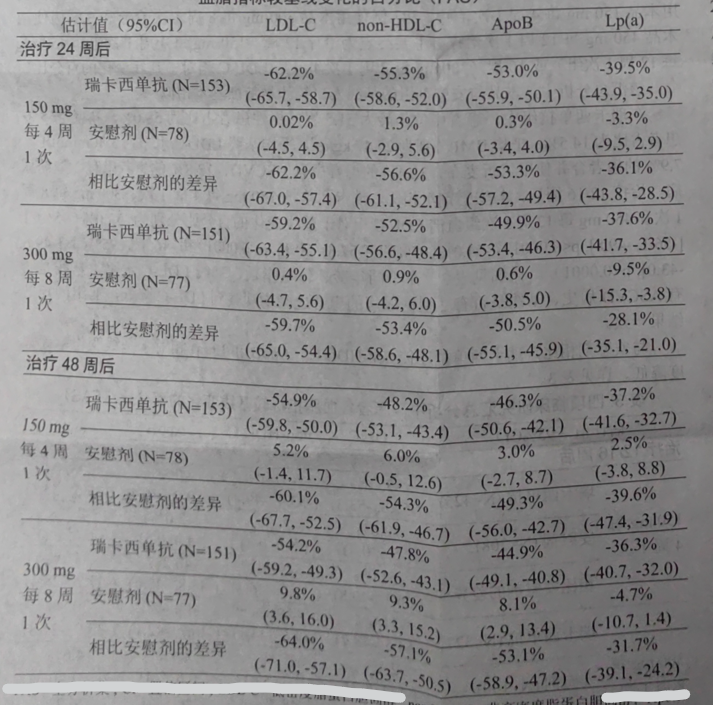 估计值（95%CI） LDL-C non-HDL-C ApoB Lp(a)
治疗 24 周后
150 mg 每 4 周 1 次
瑞卡西单抗 (N=153) -62.2% -55.3% -53.0% -39.5%
(-65.7, -58.7) (-58.6, -52.0) (-55.9, -50.1) (-43.9, -35.0)
安慰剂 (N=78) 0.02% 1.3% 0.3% -3.3%
(-4.5, 4.5) (-2.9, 5.6) (-3.4, 4.0) (-9.5, 2.9)
相比安慰剂的差异 -62.2% -56.6% -53.3% -36.1%
(-67.0, -57.4) (-61.1, -52.1) (-57.2, -49.4) (-43.8, -28.5)
300 mg 每 8 周 1 次
瑞卡西单抗 (N=151) -59.2% -52.5% -49.9% -37.6%
(-63.4, -55.1) (-56.6, -48.4) (-53.4, -46.3) (-41.7, -33.5)
安慰剂 (N=77) 0.4% 0.9% 0.6% -9.5%
(-4.7, 5.6) (-4.2, 6.0) (-3.8, 5.0) (-15.3, -3.8)
相比安慰剂的差异 -59.7% -53.4% -50.5% -28.1%
(-65.0, -54.4) (-58.6, -48.1) (-55.1, -45.9) (-35.1, -21.0)
治疗 48 周后
150 mg 每 4 周 1 次
瑞卡西单抗 (N=153) -54.9% -48.2% -46.3% -37.2%
(-59.8, -50.0) (-53.1, -43.4) (-50.6, -42.1) (-41.6, -32.7)
安慰剂 (N=78) 5.2% 6.0% 3.0% 2.5%
(-1.4, 11.7) (-0.5, 12.6) (-2.7, 8.7) (-3.8, 8.8)
相比安慰剂的差异 -60.1% -54.3% -49.3% -39.6%
(-67.7, -52.5) (-61.9, -46.7) (-56.0, -42.7) (-47.4, -31.9)
300 mg 每 8 周 1 次
瑞卡西单抗 (N=151) -54.2% -47.8% -44.9% -36.3%
(-59.2, -49.3) (-52.6, -43.1) (-49.1, -40.8) (-40.7, -32.0)
安慰剂 (N=77) 9.8% 9.3% 8.1% -4.7%
(3.6, 16.0) (3.3, 15.2) (2.9, 13.4) (-10.7, 1.4)
相比安慰剂的差异 -64.0% -57.1% -53.1% -31.7%
(-71.0, -57.1) (-63.7, -50.5) (-58.9, -47.2) (-39.1, -24.2)